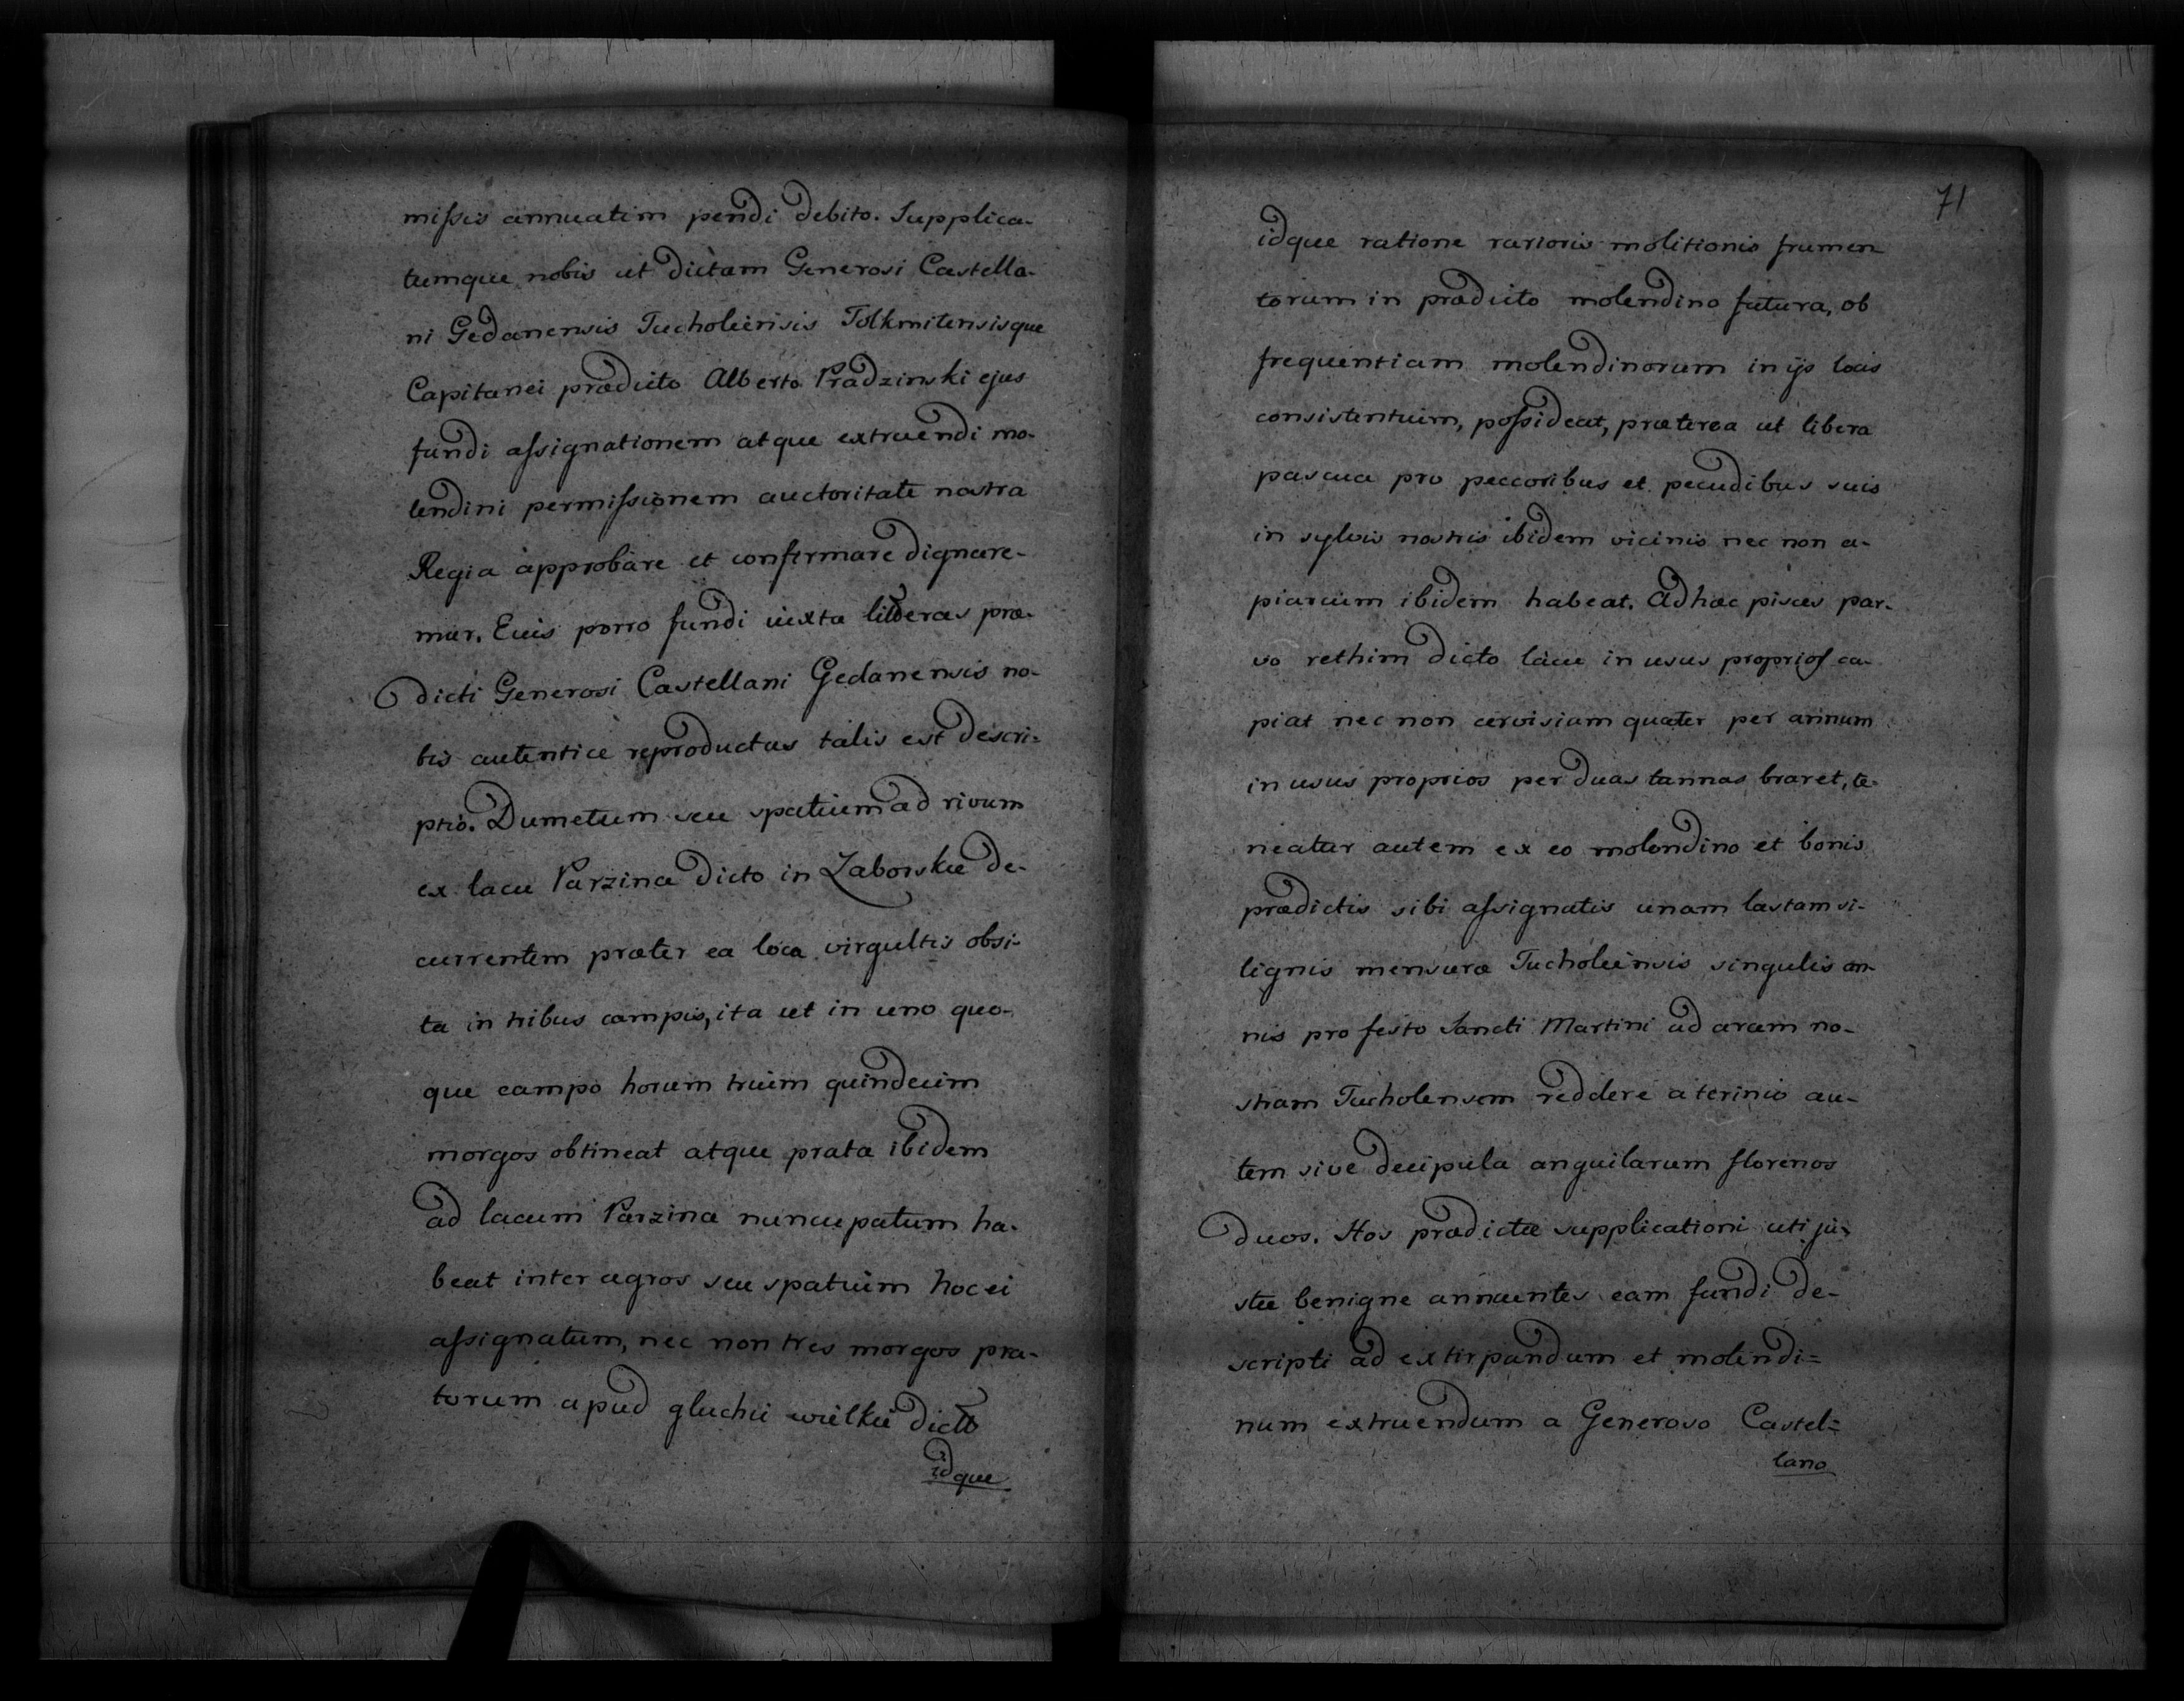 missis annuatim pendi debito. Supplica-
tumque nobis ut dictam Generosi Castella-
ni Gedanensis Tucholiensis Tolkmitensisque
Capitanei prædicto Alberto Prądzinski ejus
fundi assignationem atque extruendi mo-
lendini permissionem auctoritate nostra
Regia approbare et confirmare dignare-
mur. Euis porro fundi iuxta litteras præ-
dicti Generosi Castellani Gedanensis no-
bis autentice reproductas talis est descri-
ptio. Dumetum seu spatium ad rivum
ex lacu Parzina dicto in Zaborskie de-
currentem præter ea loca virgultis obsi-
ta in tribus campis, ita ut in uno quo-
que campo horum trium quindecim
morgos obtineat atque prata ibidem
ad lacum Parzina nuncupatum ha-
beat inter agros seu spatium hoc ei
assignatum, nec non tres morgos pra-
torum apud gluchii wielkie dicto
idque
71
idque ratione rarioris molitionis frumen
torum in prædicto molendino futura, ob
frequentiam molendinorum in ijs locis
consistentium, possideat, præterea ut libera
pascua pro peccoribus et pecudibus suis
in sylvis nostris ibidem vicinis nec non a-
piarium ibidem habeat. Ad hæc pisces par-
vo rethim dicto lacu in usus proprios ca-
piat nec non cervisiam quater per annum
in usus proprios per duas tannas braret, te-
neatur autem ex eo molendino et bonis
prædictis sibi assignatis unam lastam si-
lignis mensuræ Tucholiensis singulis an-
nis pro festo Sancti Martini ad arcem no-
stram Tucholensem reddere a terinio au-
tem sive decipula anguilarum florenos
duos. Nos prædictæ supplicationi uti ju-
stæ benigne annuentes eam fundi de-
scripti ad extirpandum et molendi=
num extruendum a Generoso Castel=
lano